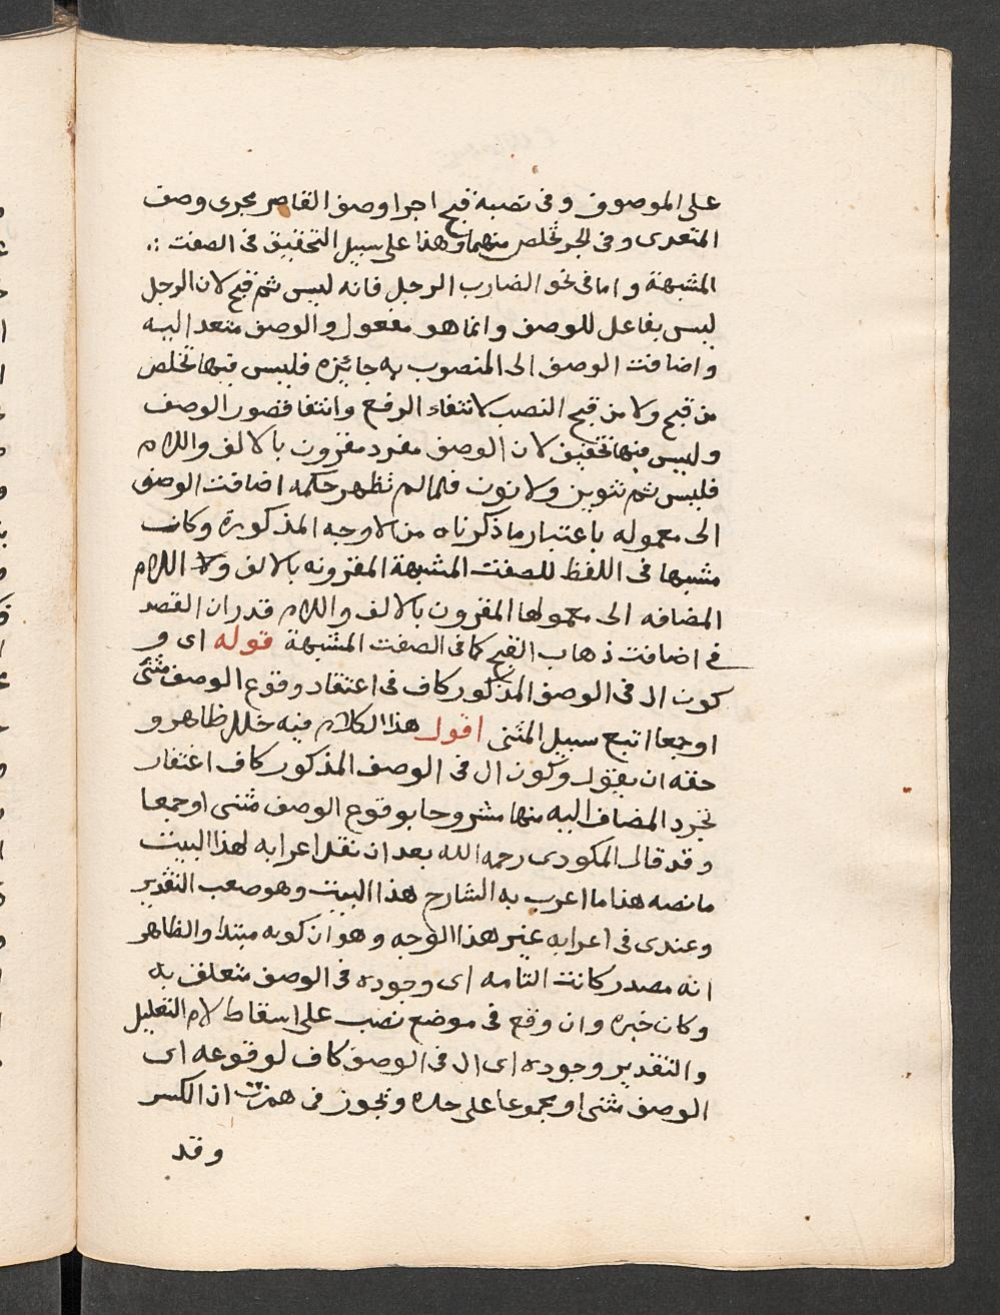 على الموصوف وفى نصبه قبح اجرا وصف القاصر مجرى وصف
المتعدى وفى الجر تخلص منهما وهذا على سبيل التحقيق فى الصفت
المشبهة واما فى نحو الضارب الرجل فانه ليس ثم قبح لان الرجل
ليس بفاعل للوصف وانما هو مفعول والوصف متعد اليه
واضافت الوصف الى المنصوب به جائزه فليس فيها تخلص
من قبح ولا من قبح النصب لانتفاء الرفع وانتفا قصور الوصف
وليس فيها تخفيف لان الوصف مفرد مقرون بالالف واللام
فليس ثم تنوين ولا نون فلما لم تظهر حكمه اضافت الوصف
الى معموله باعتبار ما ذكرناه من الاوجه المذكورة وكانت
مشبها فى اللفظ للصفت المشبهة المقرونه بالالف ولا اللام
المضافه الى معمولها المقرون بالالف واللام قدر ان القصد
فى اضافت ذهاب القبح كما فى الصفت المشبهة قوله اى و
كون ال فى الوصف المذكور كاف فى اعتقاد وقوع الوصف مثنى
او جمعا اتبع سبيل المثنى اقول هذا الكلام فيه خلل ظاهر و
حقه ان يقول وكون ال فى الوصف المذكور كاف اغتفار
تجرد المضاف اليه منها مشروحا بوقوع الوصف مثنى او جمعا
وقد قال المكودى رحمه الله بعد ان نقل اعرابه لهذا البيت
ما نصه هذا ما اعرب به الشارح هذا البيت وهو صعب التقدير
وعندى فى اعرابه غير هذا الوجه وهو ان كونه مبتدا والظاهر
انه مصدر كانت التامه اى وجوده فى الوصف متعلق به
وكان خبره وان وقع فى موضع نصب على اسقاط لام التعليل
والتقدير وجوده اى ال فى الوصف كاف لوقوعه اى
الوصف مثنى او مجموعا على حده وتجوز فى همزت ان الكسر
وقد